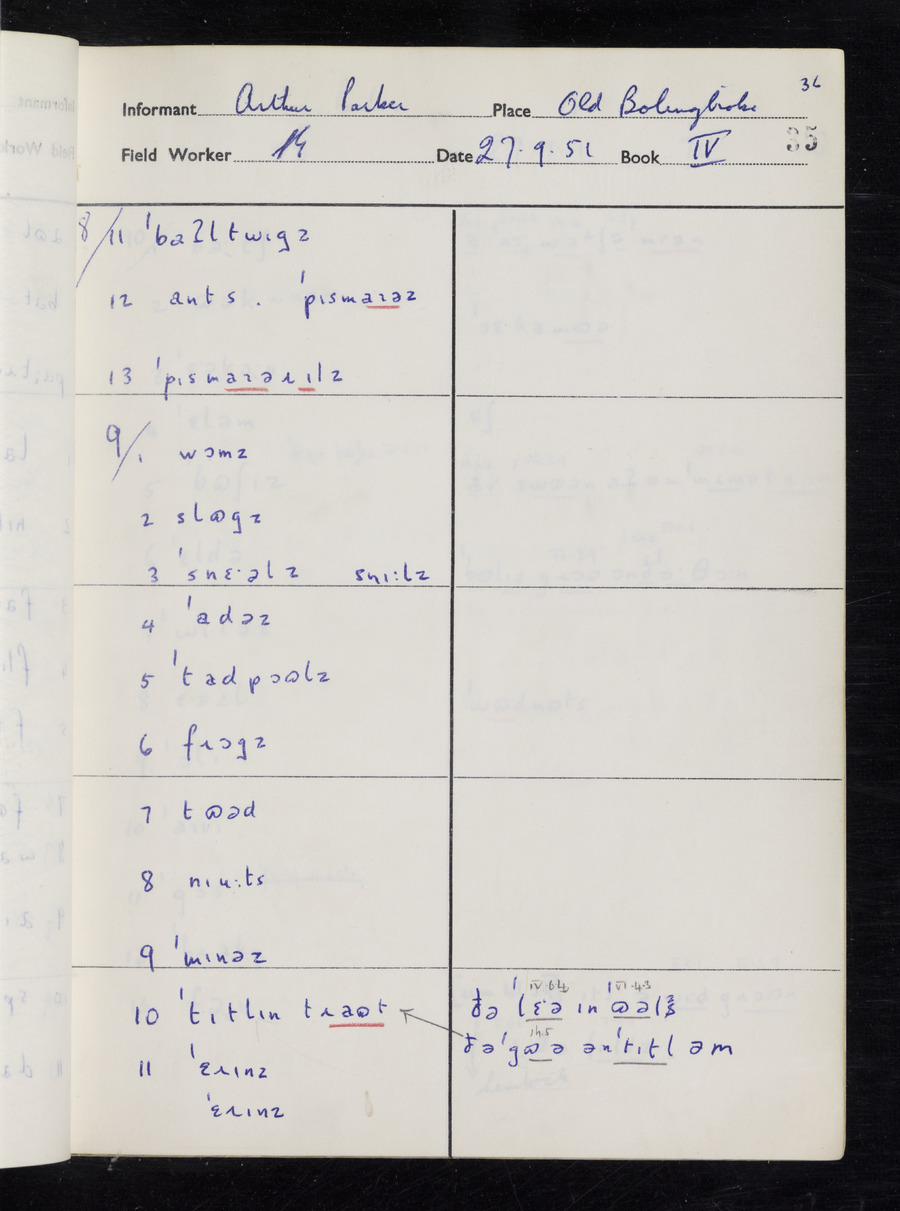 36
Informant Arthur Parker Place Old Bolingbroke
Field Worker Date 27.9.51 Book IV 35
8/11 ˈbaʔl twɪgz
12 ants. ˈpɪsmaɹəz
13 ˈpɪsmaɹəɹ ɪlz
9/1 wɔmz
2 slɷgz
3 ˈsnɛ·əlz snɪ:lz
4 ˈadəz
5 ˈtadpɔɷlz
6 fɹɔgz
7 tɷəd
8 nɪu:ts
9 ˈmɪnəz
10 ˈtɪtlɪn tɹaɷt ðə ˈlɛ·ə ɪn ˈɷəlz
IV.6.4 VI.4.3
ðə ˈgɷə ən ˈtɪtl əm
11 ˈɛɹɪnz
ˈɛɹɪnz